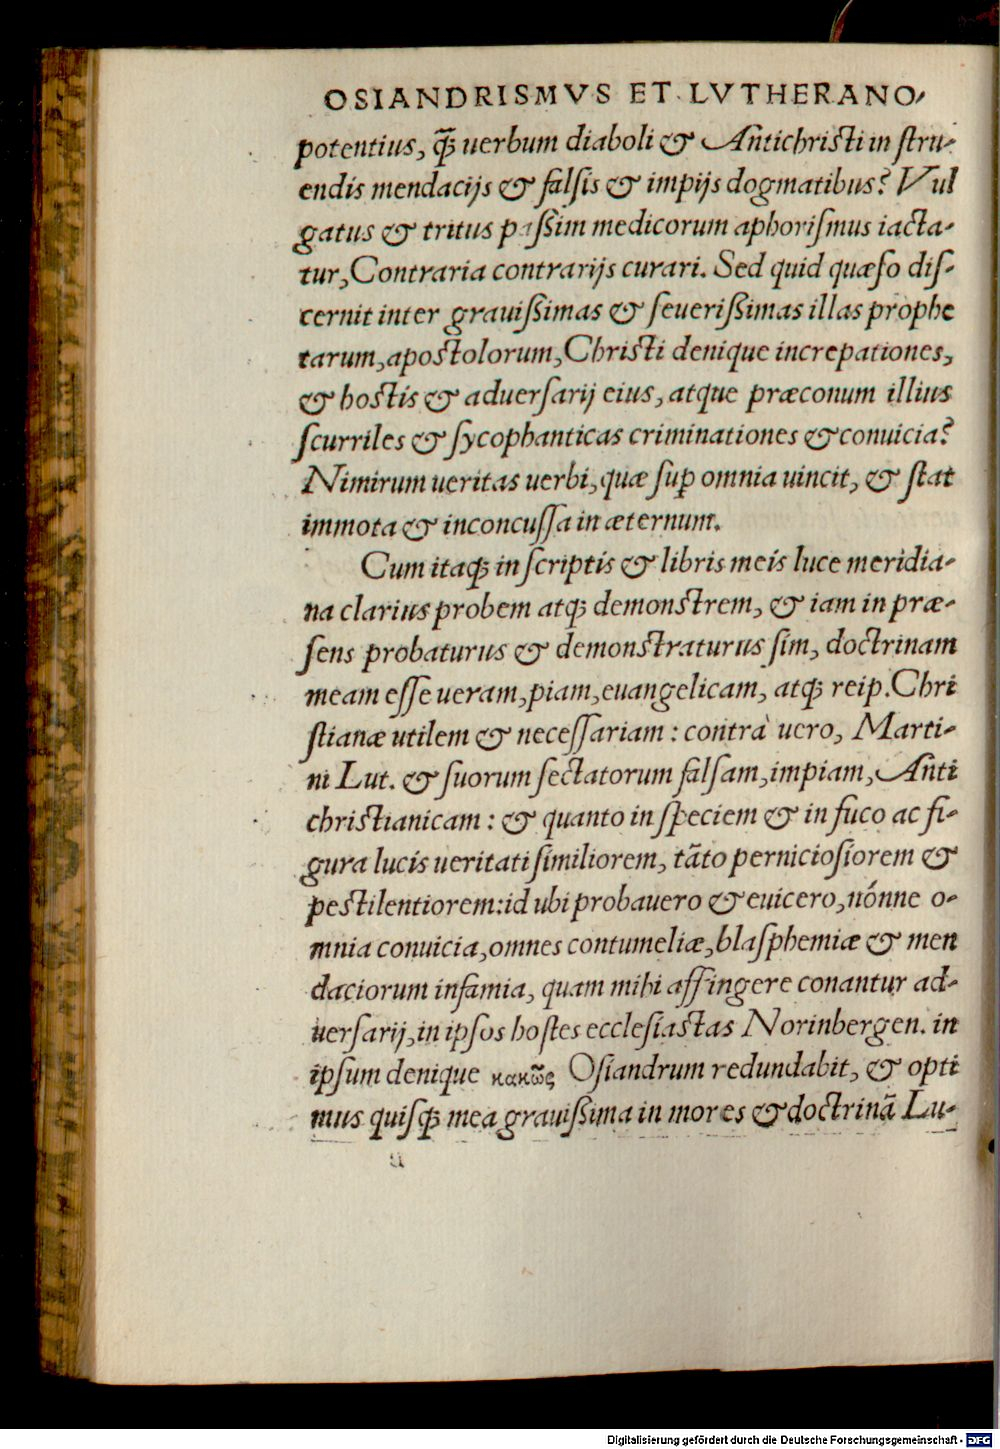 OSIANDRISMVS ET LVTHERANO-
potentius, q̃ꝫ uerbum diaboli & Antichristi in stru-
endis mendacijs & falsis & impijs dogmatibus? Vul
gatus & tritus passim medicorum aphorismus iacta-
tur, Contraria contrarijs curari. Sed quid quæso dis-
cernit inter grauissimas & seuerissimas illas prophe
tarum, apostolorum, Christi denique increpationes,
& hostis & aduersarij eius, atque præconum illius
scurriles & sycophanticas criminationes & conuicia?
Nimirum ueritas uerbi, quæ suꝑ omnia uincit, & stat
immota & inconcussa in æternum.
Cum itaqꝫ in scriptis & libris meis luce meridia-
na clarius probem atqꝫ demonstrem, & iam in præ-
sens probaturus & demonstraturus sim, doctrinam
meam esse ueram, piam, euangelicam, atqꝫ reip. Chri
stianæ utilem & necessariam: contrà uero, Marti-
ni Lut. & suorum sectatorum falsam, impiam, Anti
christianicam: & quanto in speciem & in fuco ac fi-
gura lucis ueritati similiorem, tãto perniciosiorem &
pestilentiorem: id ubi probauero & euicero, nónne o-
mnia conuicia, omnes contumeliæ, blasphemiæ & men
daciorum infamia, quam mihi affingere conantur ad-
uersarij, in ipsos hostes ecclesiastas Norinbergen. in
ipsum denique κακῶς Osiandrum redundabit, & opti
mus quisqꝫ mea grauissima in mores & doctrinã Lu-
Digitalisierung gefördert durch die Deutsche Forschungsgemeinschaft - DFG